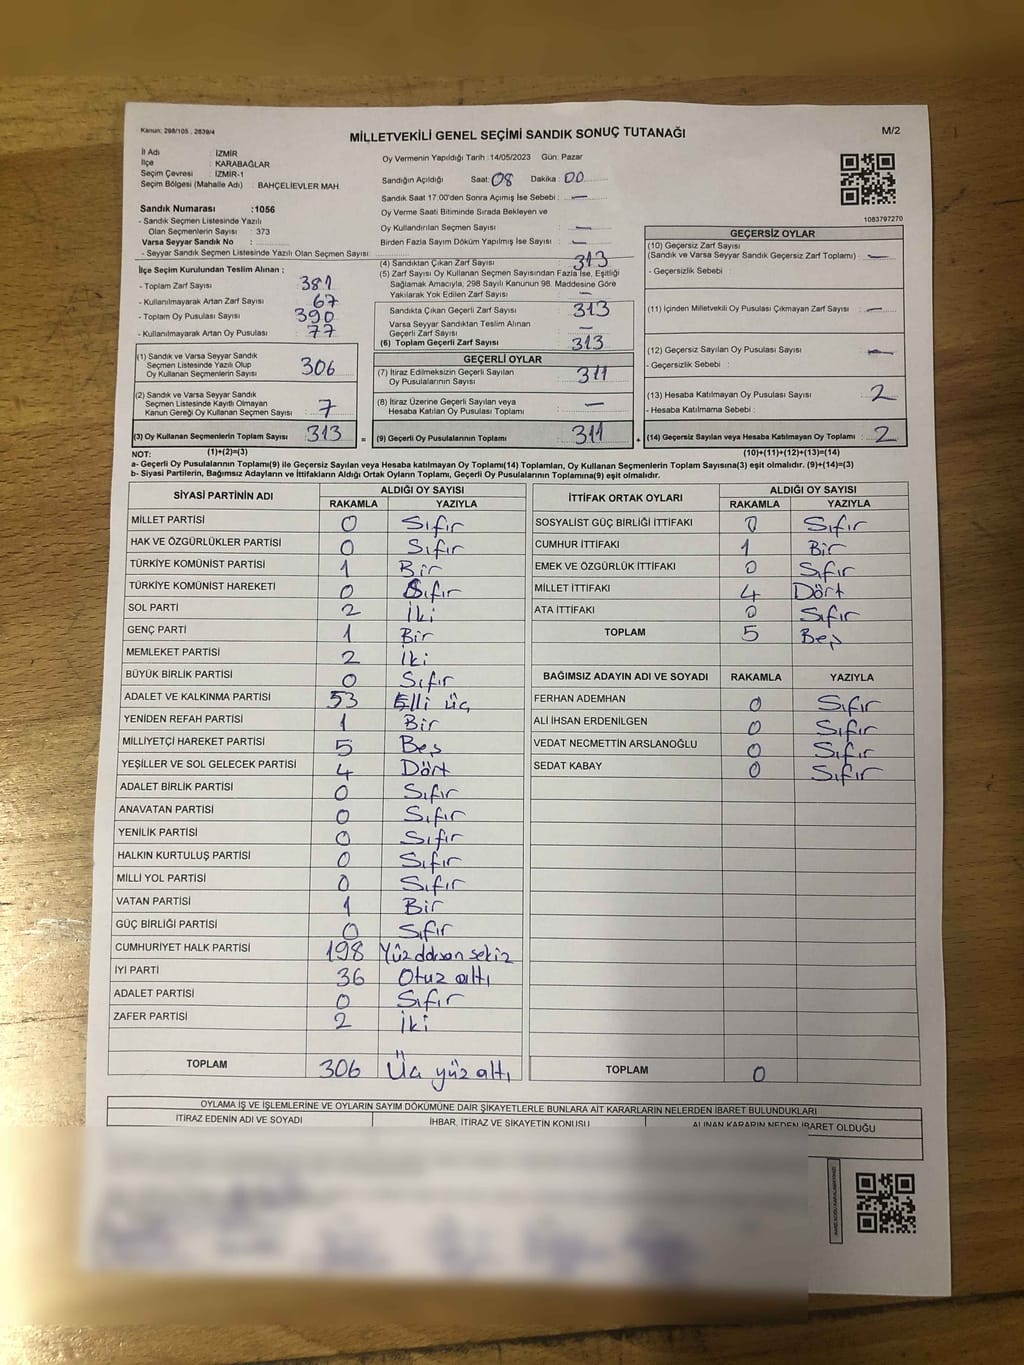 Kanun: 298/105 , 2839/4
MİLLETVEKİLİ GENEL SEÇİMİ SANDIK SONUÇ TUTANAĞI
M/2
İl Adı : İZMİR
İlçe : KARABAĞLAR
Seçim Çevresi : İZMİR-1
Seçim Bölgesi (Mahalle Adı) : BAHÇELİEVLER MAH.
Sandık Numarası : 1056
- Sandık Seçmen Listesinde Yazılı
Olan Seçmenlerin Sayısı : 373
Varsa Seyyar Sandık No :
- Seyyar Sandık Seçmen Listesinde Yazılı Olan Seçmen Sayısı
Oy Vermenin Yapıldığı Tarih : 14/05/2023 Gün: Pazar
Sandığın Açıldığı Saat: 08 Dakika : 00
Sandık Saat 17:00'den Sonra Açımış İse Sebebi : —
Oy Verme Saati Bitiminde Sırada Bekleyen ve
Oy Kullandırılan Seçmen Sayısı : —
Birden Fazla Sayım Döküm Yapılmış İse Sayısı : —
1083797270
İlçe Seçim Kurulundan Teslim Alınan ;
- Toplam Zarf Sayısı : 381
- Kullanılmayarak Artan Zarf Sayısı : 67
- Toplam Oy Pusulası Sayısı : 390
- Kullanılmayarak Artan Oy Pusulası : 77
(1) Sandık ve Varsa Seyyar Sandık
Seçmen Listesinde Yazılı Olup
Oy Kullanan Seçmenlerin Sayısı : 306
(2) Sandık ve Varsa Seyyar Sandık
Seçmen Listesinde Kayıtlı Olmayan
Kanun Gereği Oy Kullanan Seçmen Sayısı : 7
(3) Oy Kullanan Seçmenlerin Toplam Sayısı : 313
(1)+(2)=(3)
(4) Sandıktan Çıkan Zarf Sayısı : 313
(5) Zarf Sayısı Oy Kullanan Seçmen Sayısından Fazla İse, Eşitliği
Sağlamak Amacıyla, 298 Sayılı Kanunun 98. Maddesine Göre
Yakılarak Yok Edilen Zarf Sayısı : —
Sandıkta Çıkan Geçerli Zarf Sayısı : 313
Varsa Seyyar Sandıktan Teslim Alınan
Geçerli Zarf Sayısı : —
(6) Toplam Geçerli Zarf Sayısı : 313
GEÇERLİ OYLAR
(7) İtiraz Edilmeksizin Geçerli Sayılan
Oy Pusulalarının Sayısı : 311
(8) İtiraz Üzerine Geçerli Sayılan veya
Hesaba Katılan Oy Pusulası Toplamı : —
= (9) Geçerli Oy Pusulalarının Toplamı : 311 +
GEÇERSİZ OYLAR
(10) Geçersiz Zarf Sayısı
(Sandık ve Varsa Seyyar Sandık Geçersiz Zarf Toplamı) : —
- Geçersizlik Sebebi :
(11) İçinden Milletvekili Oy Pusulası Çıkmayan Zarf Sayısı : —
(12) Geçersiz Sayılan Oy Pusulası Sayısı : —
- Geçersizlik Sebebi :
(13) Hesaba Katılmayan Oy Pusulası Sayısı : 2
- Hesaba Katılmama Sebebi :
(14) Geçersiz Sayılan veya Hesaba Katılmayan Oy Toplamı : 2
(10)+(11)+(12)+(13)=(14)
NOT:
a- Geçerli Oy Pusulalarının Toplamı(9) ile Geçersiz Sayılan veya Hesaba katılmayan Oy Toplamı(14) Toplamları, Oy Kullanan Seçmenlerin Toplam Sayısına(3) eşit olmalıdır. (9)+(14)=(3)
b- Siyasi Partilerin, Bağımsız Adayların ve İttifakların Aldığı Ortak Oyların Toplamı, Geçerli Oy Pusulalarının Toplamına(9) eşit olmalıdır.
SİYASİ PARTİNİN ADI ALDIĞI OY SAYISI
RAKAMLA YAZIYLA
MİLLET PARTİSİ 0 Sıfır
HAK VE ÖZGÜRLÜKLER PARTİSİ 0 Sıfır
TÜRKİYE KOMÜNİST PARTİSİ 1 Bir
TÜRKİYE KOMÜNİST HAREKETİ 0 Sıfır
SOL PARTİ 2 İki
GENÇ PARTİ 1 Bir
MEMLEKET PARTİSİ 2 İki
BÜYÜK BİRLİK PARTİSİ 0 Sıfır
ADALET VE KALKINMA PARTİSİ 53 Elli üç
YENİDEN REFAH PARTİSİ 1 Bir
MİLLİYETÇİ HAREKET PARTİSİ 5 Beş
YEŞİLLER VE SOL GELECEK PARTİSİ 4 Dört
ADALET BİRLİK PARTİSİ 0 Sıfır
ANAVATAN PARTİSİ 0 Sıfır
YENİLİK PARTİSİ 0 Sıfır
HALKIN KURTULUŞ PARTİSİ 0 Sıfır
MİLLİ YOL PARTİSİ 0 Sıfır
VATAN PARTİSİ 1 Bir
GÜÇ BİRLİĞİ PARTİSİ 0 Sıfır
CUMHURİYET HALK PARTİSİ 198 Yüz doksan sekiz
İYİ PARTİ 36 Otuz altı
ADALET PARTİSİ 0 Sıfır
ZAFER PARTİSİ 2 İki
TOPLAM 306 Üç yüz altı
İTTİFAK ORTAK OYLARI ALDIĞI OY SAYISI
RAKAMLA YAZIYLA
SOSYALİST GÜÇ BİRLİĞİ İTTİFAKI 0 Sıfır
CUMHUR İTTİFAKI 1 Bir
EMEK VE ÖZGÜRLÜK İTTİFAKI 0 Sıfır
MİLLET İTTİFAKI 4 Dört
ATA İTTİFAKI 0 Sıfır
TOPLAM 5 Beş
BAĞIMSIZ ADAYIN ADI VE SOYADI RAKAMLA YAZIYLA
FERHAN ADEMHAN 0 Sıfır
ALİ İHSAN ERDENİLGEN 0 Sıfır
VEDAT NECMETTİN ARSLANOĞLU 0 Sıfır
SEDAT KABAY 0 Sıfır
TOPLAM 0
OYLAMA İŞ VE İŞLEMLERİNE VE OYLARIN SAYIM DÖKÜMÜNE DAİR ŞİKAYETLERLE BUNLARA AİT KARARLARIN NELERDEN İBARET BULUNDUKLARI
İTİRAZ EDENİN ADI VE SOYADI İHBAR, İTİRAZ VE ŞİKAYETİN KONUSU ALINAN KARARIN NEDEN İBARET OLDUĞU